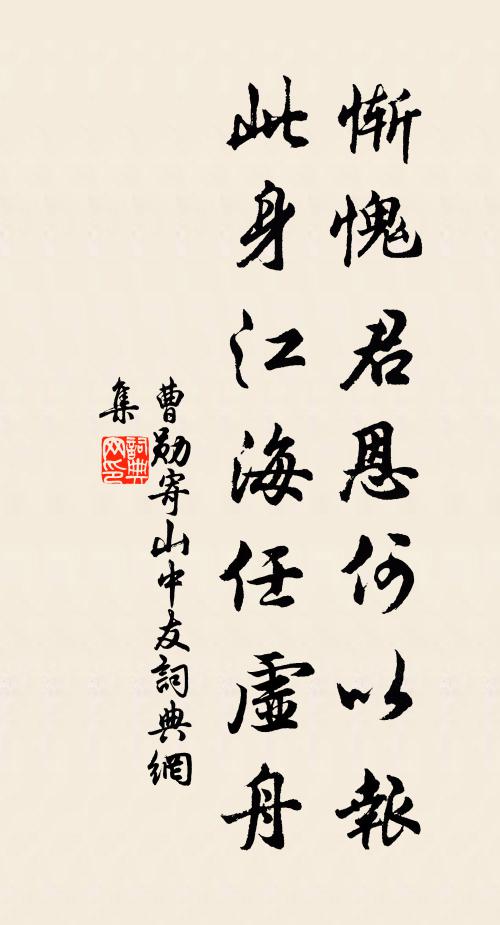 慚愧君恩何以報
此身江海任虛舟
曹勛寄山中友詞典網
集
詞典
网印